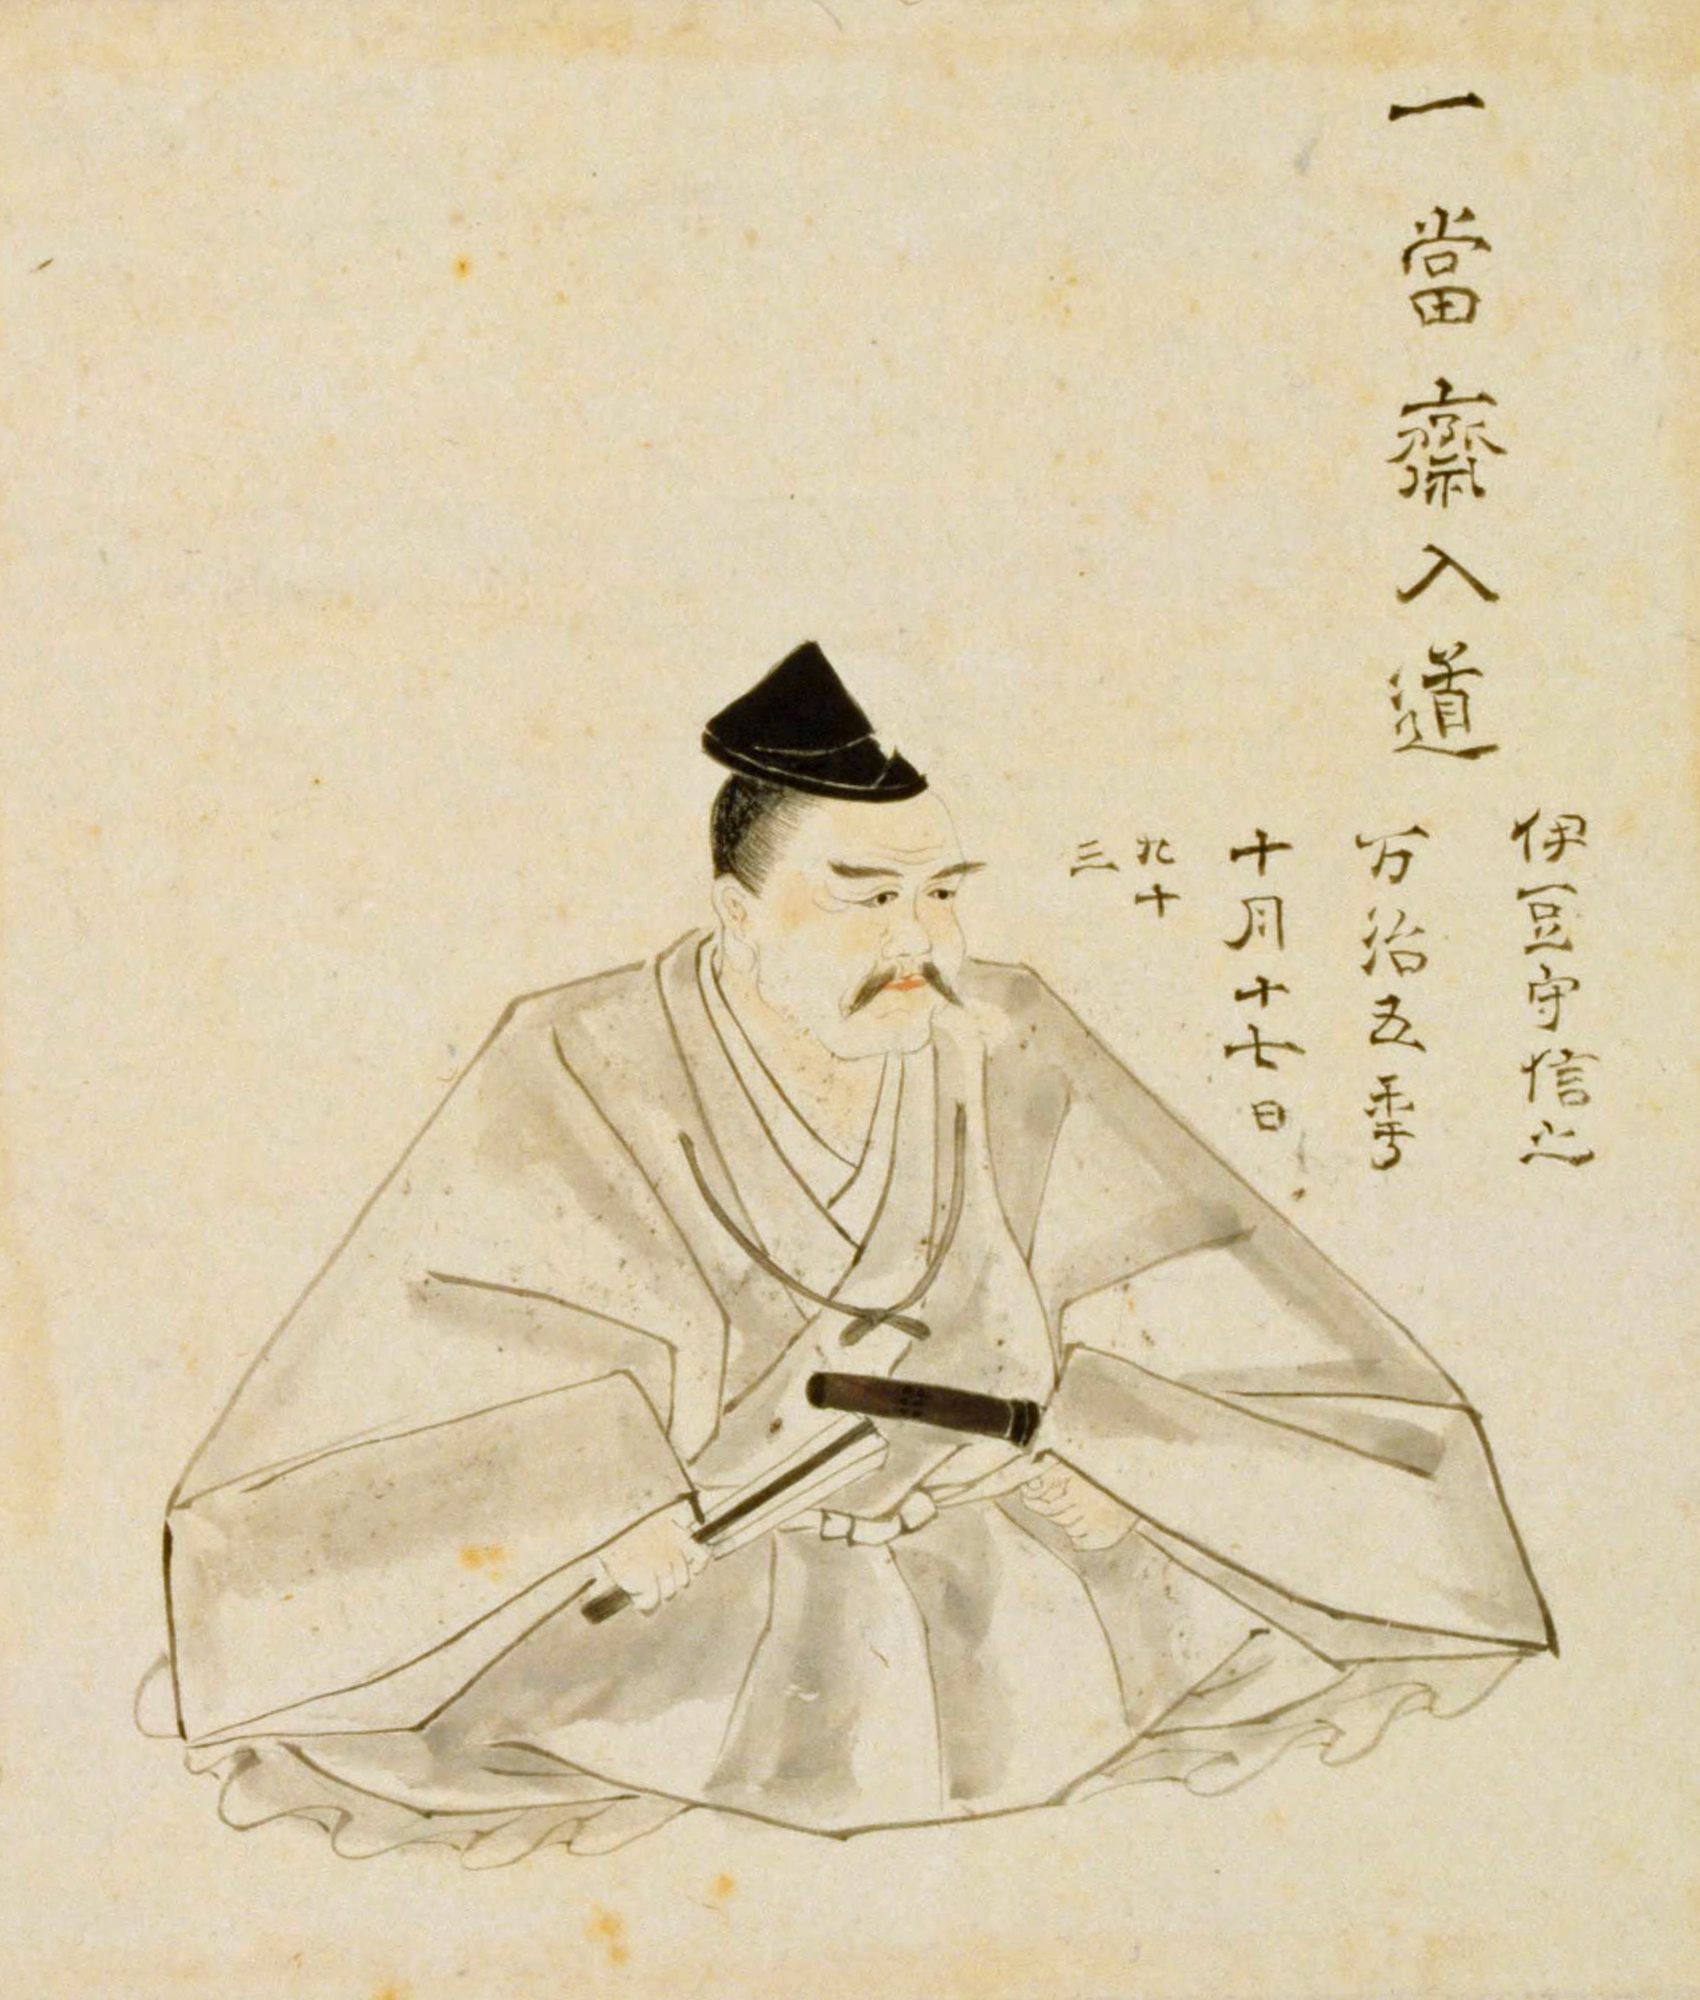 一當齋入道
伊豆守信之
万治五秊
十月十七日
九十
三